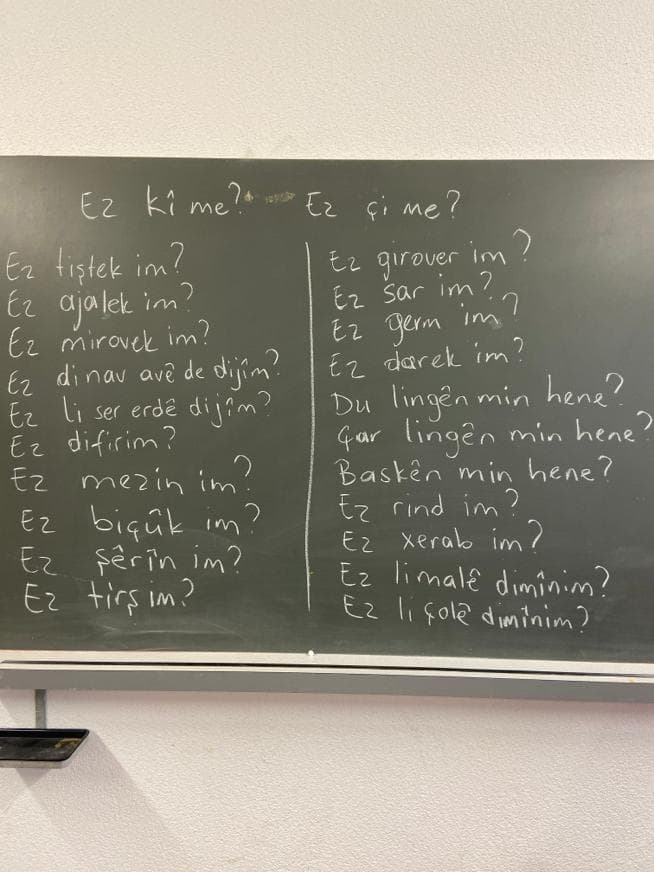 Ez kî me? Ez çi me?
Ez tiştek im?
Ez ajalek im?
Ez mirovek im?
Ez di nav avê de dijîm?
Ez li ser erdê dijîm?
Ez difirim?
Ez mezin im?
Ez biçûk im?
Ez şêrîn im?
Ez tirş im?
Ez girover im?
Ez sar im?
Ez germ im?
Ez darek im?
Du lingên min hene?
Çar lingên min hene?
Baskên min hene?
Ez rind im?
Ez xerab im?
Ez li malê dimînim?
Ez li çolê dimînim?